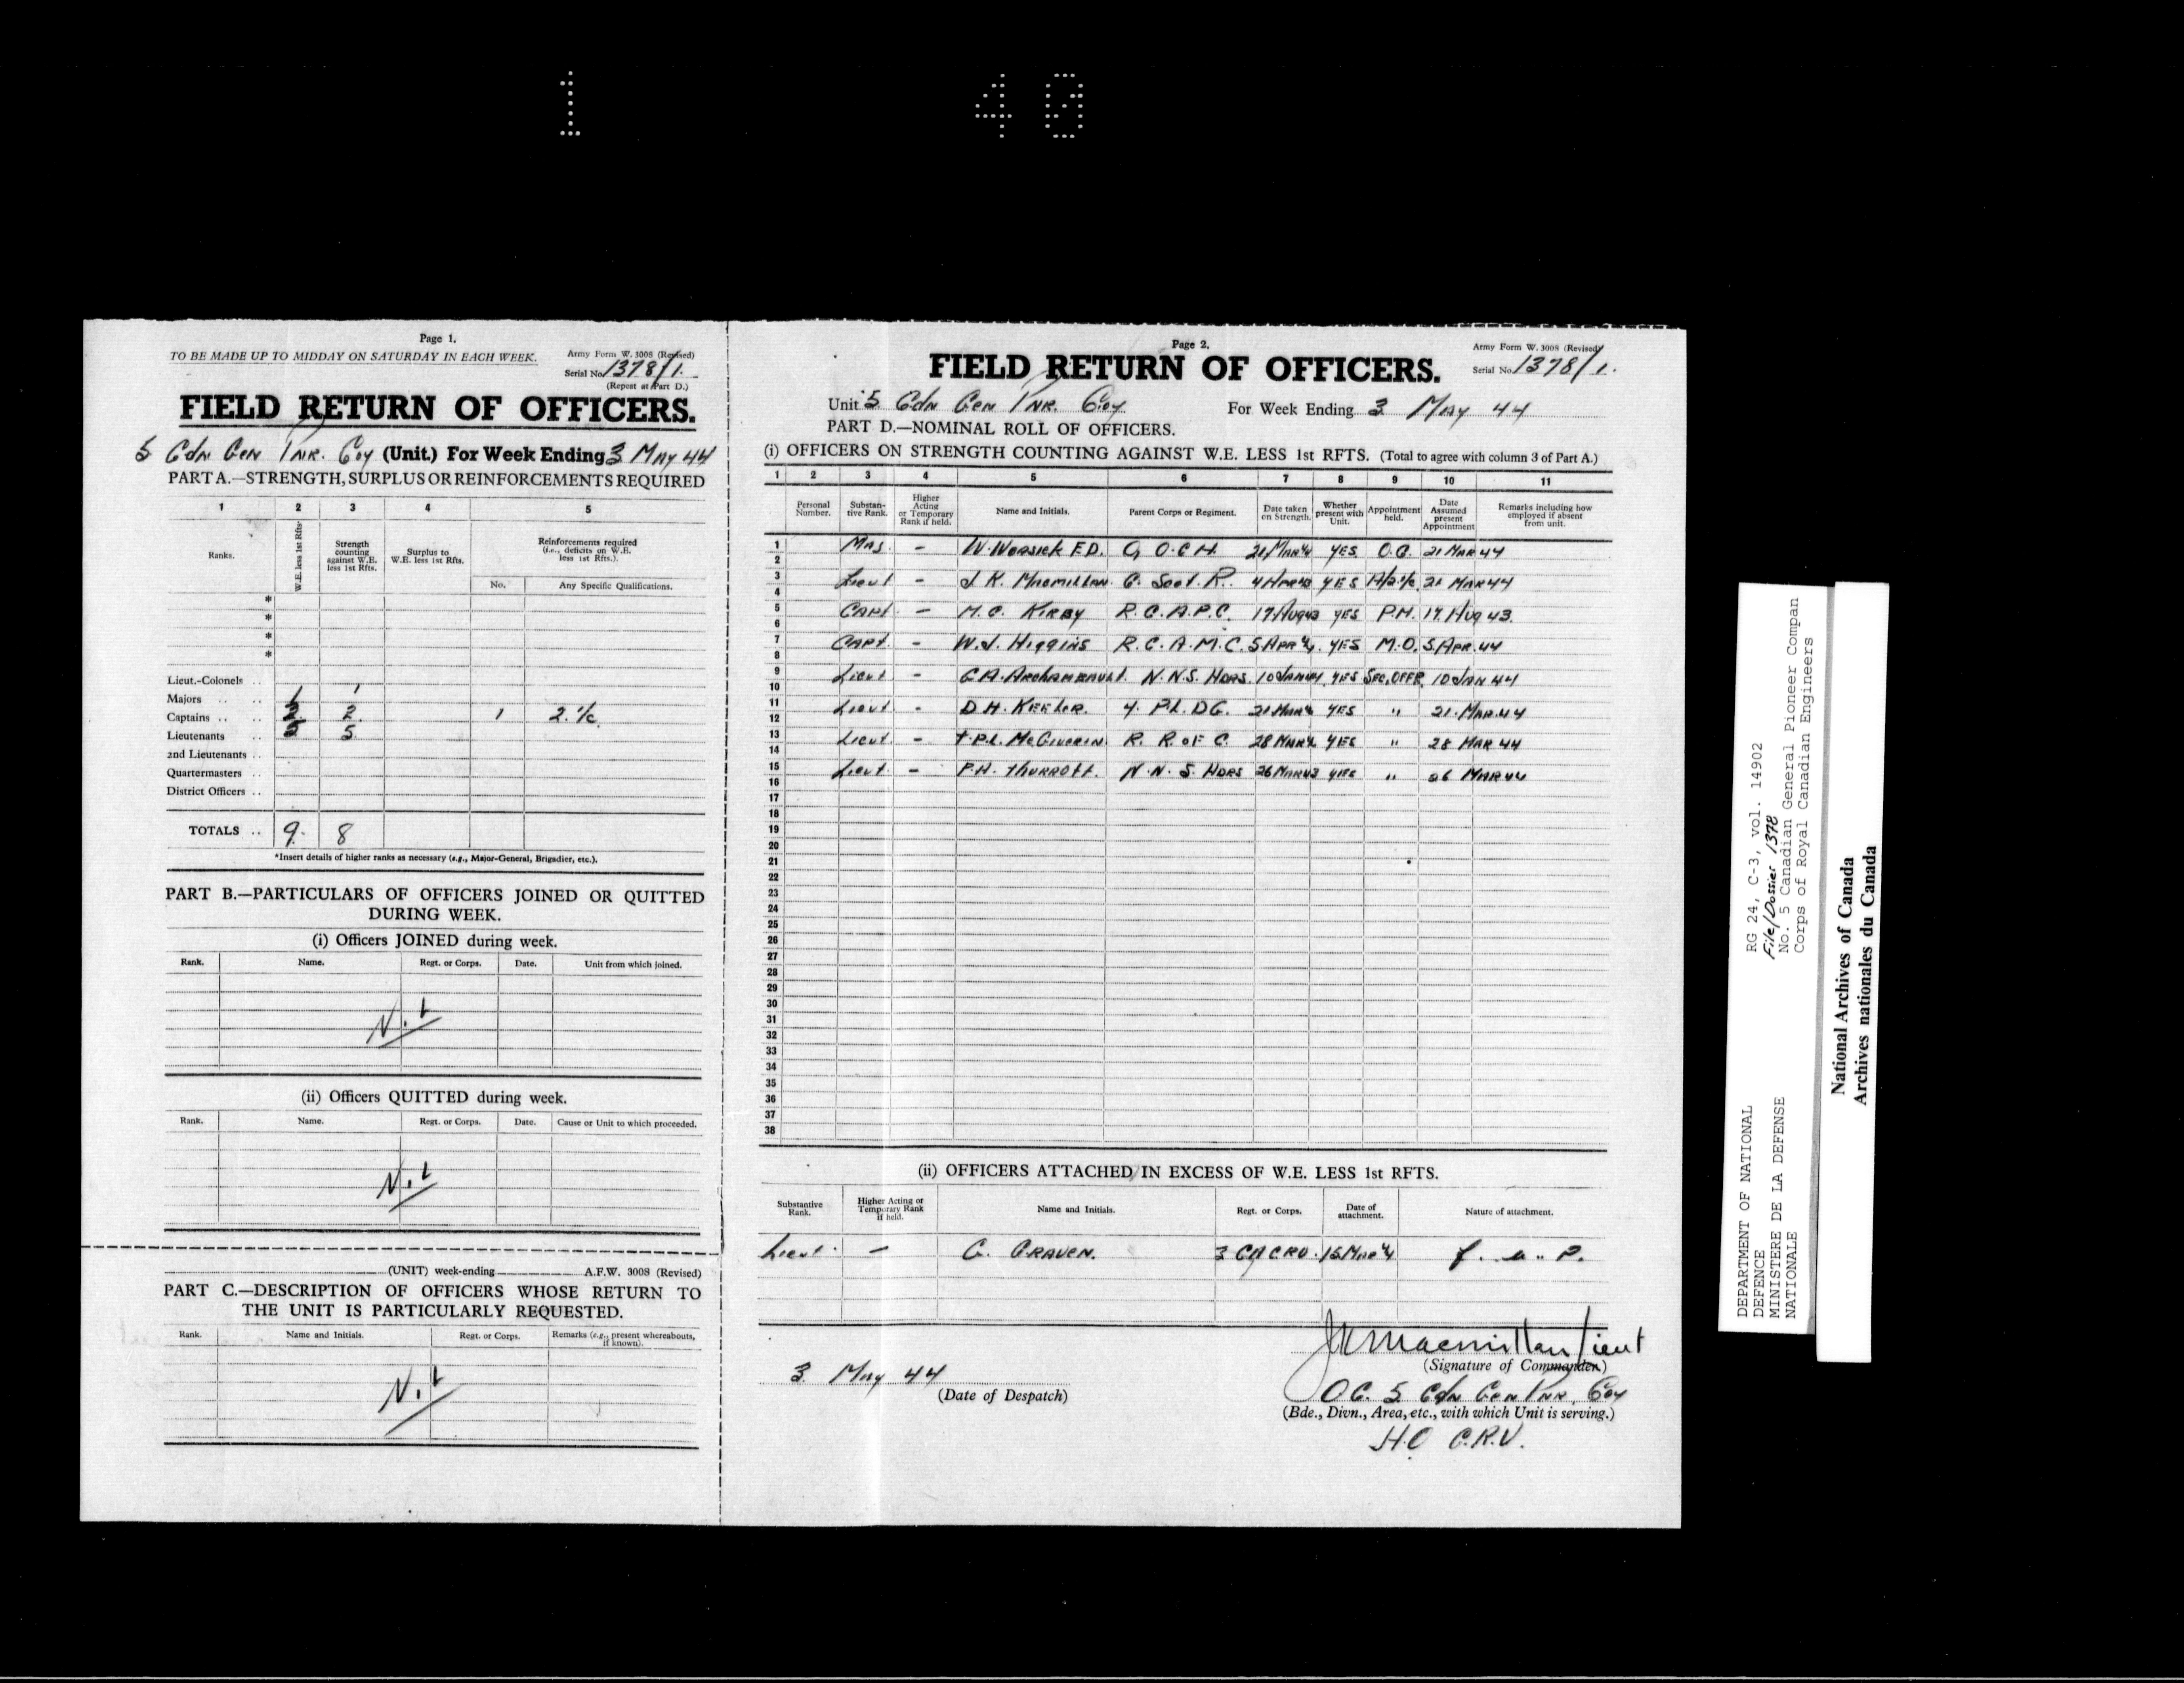 1 40
Page 1.
TO BE MADE UP TO MIDDAY ON SATURDAY IN EACH WEEK.
Army Form W. 3008 (Revised)
Serial No. 1378/1.
(Repeat at Part D.)
FIELD RETURN OF OFFICERS.
5 Cdn Gen Pnr. Coy (Unit.) For Week Ending 3 May 44
PART A.—STRENGTH, SURPLUS OR REINFORCEMENTS REQUIRED
1 2 3 4 5
Ranks. W.E. less 1st Rfts. Strength counting against W.E. less 1st Rfts. Surplus to W.E. less 1st Rfts. Reinforcements required (i.e., deficits on W.E. less 1st Rfts.).
No. Any Specific Qualifications.
*
*
*
*
Lieut.-Colonels ..
Majors .. .. 1 1
Captains .. .. 2 1 2 i/c.
Lieutenants .. 5
2nd Lieutenants ..
Quartermasters ..
District Officers ..
TOTALS .. 9. 8
*Insert details of higher ranks as necessary (e.g., Major-General, Brigadier, etc.).
PART B.—PARTICULARS OF OFFICERS JOINED OR QUITTED
DURING WEEK.
(i) Officers JOINED during week.
Rank. Name. Regt. or Corps. Date. Unit from which joined.
Nil
(ii) Officers QUITTED during week.
Rank. Name. Regt. or Corps. Date. Cause or Unit to which proceeded.
Nil
(UNIT) week-ending A.F.W. 3008 (Revised)
PART C.—DESCRIPTION OF OFFICERS WHOSE RETURN TO
THE UNIT IS PARTICULARLY REQUESTED.
Rank. Name and Initials. Regt. or Corps. Remarks (e.g., present whereabouts, if known).
Nil
Page 2.
Army Form W. 3008 (Revised)
Serial No. 1378/1.
FIELD RETURN OF OFFICERS.
Unit 5 Cdn Gen Pnr. Coy For Week Ending 3 May 44
PART D.—NOMINAL ROLL OF OFFICERS.
(i) OFFICERS ON STRENGTH COUNTING AGAINST W.E. LESS 1st RFTS. (Total to agree with column 3 of Part A.)
1 2 3 4 5 6 7 8 9 10 11
Personal Number. Substantive Rank. Higher Acting or Temporary Rank if held. Name and Initials. Parent Corps or Regiment. Date taken on Strength. Whether present with Unit. Appointment held. Date Assumed present Appointment Remarks including how employed if absent from unit.
1 Maj - W. Worsick E.D. Q. O. C. H. 21 Mar 44 YES O.C. 21 MAR 44
2
3 Lieut - J. K. Macmillan C. Scot. R. YES 21 MAR 44
4
5 Capt. - M. C. Kirby R. C. A. P. C. 17 Aug 43 YES P.M. 17. Aug 43.
6
7 Capt. - W. J. Higgins R. C. A. M. C. 5 Apr 44. YES M.O. 5 Apr. 44
8
9 Lieut - G. A. Archambault. N. N. S. Hdrs. 10 Jan 44 YES Sec. Offr. 10 JAN 44
10
11 Lieut - D. H. Keeler. 4. P.L. DG. 21 Mar 44 YES " 21. MAR. 44
12
13 Lieut - T. P. L. McGiverin R. R. of C. 28 Mar 44 YES " 28 MAR 44
14
15 Lieut. - P. H. Thurrott. N. N. S. Hdrs YES " 26 MAR 44
16
17
18
19
20
21
22
23
24
25
26
27
28
29
30
31
32
33
34
35
36
37
38
(ii) OFFICERS ATTACHED IN EXCESS OF W.E. LESS 1st RFTS.
Substantive Rank. Higher Acting or Temporary Rank if held. Name and Initials. Regt. or Corps. Date of attachment. Nature of attachment.
Lieut. - G. Craven. 3 CACRU. 15 Mar 44
JK Macmillan Lieut
(Signature of Commander.)
3 May 44
(Date of Despatch)
O.C. 5 Cdn Gen Pnr. Coy
(Bde., Divn., Area, etc., with which Unit is serving.)
H.Q C.R.U.
RG 24, C-3, vol. 14902
File/Dossier 1378
No. 5 Canadian General Pioneer Compan
Corps of Royal Canadian Engineers
DEPARTMENT OF NATIONAL
DEFENCE
MINISTERE DE LA DEFENSE
NATIONALE
National Archives of Canada
Archives nationales du Canada